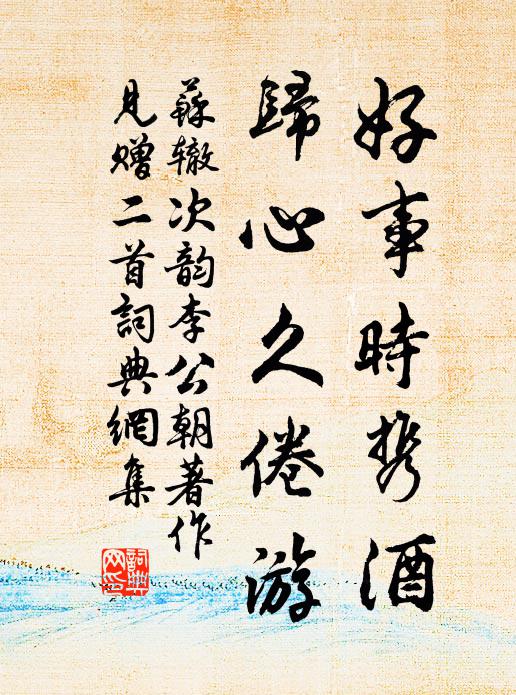 好事時携酒
歸心久倦游
蘇辙次韵李公朝著作
見赠二首詞典網集